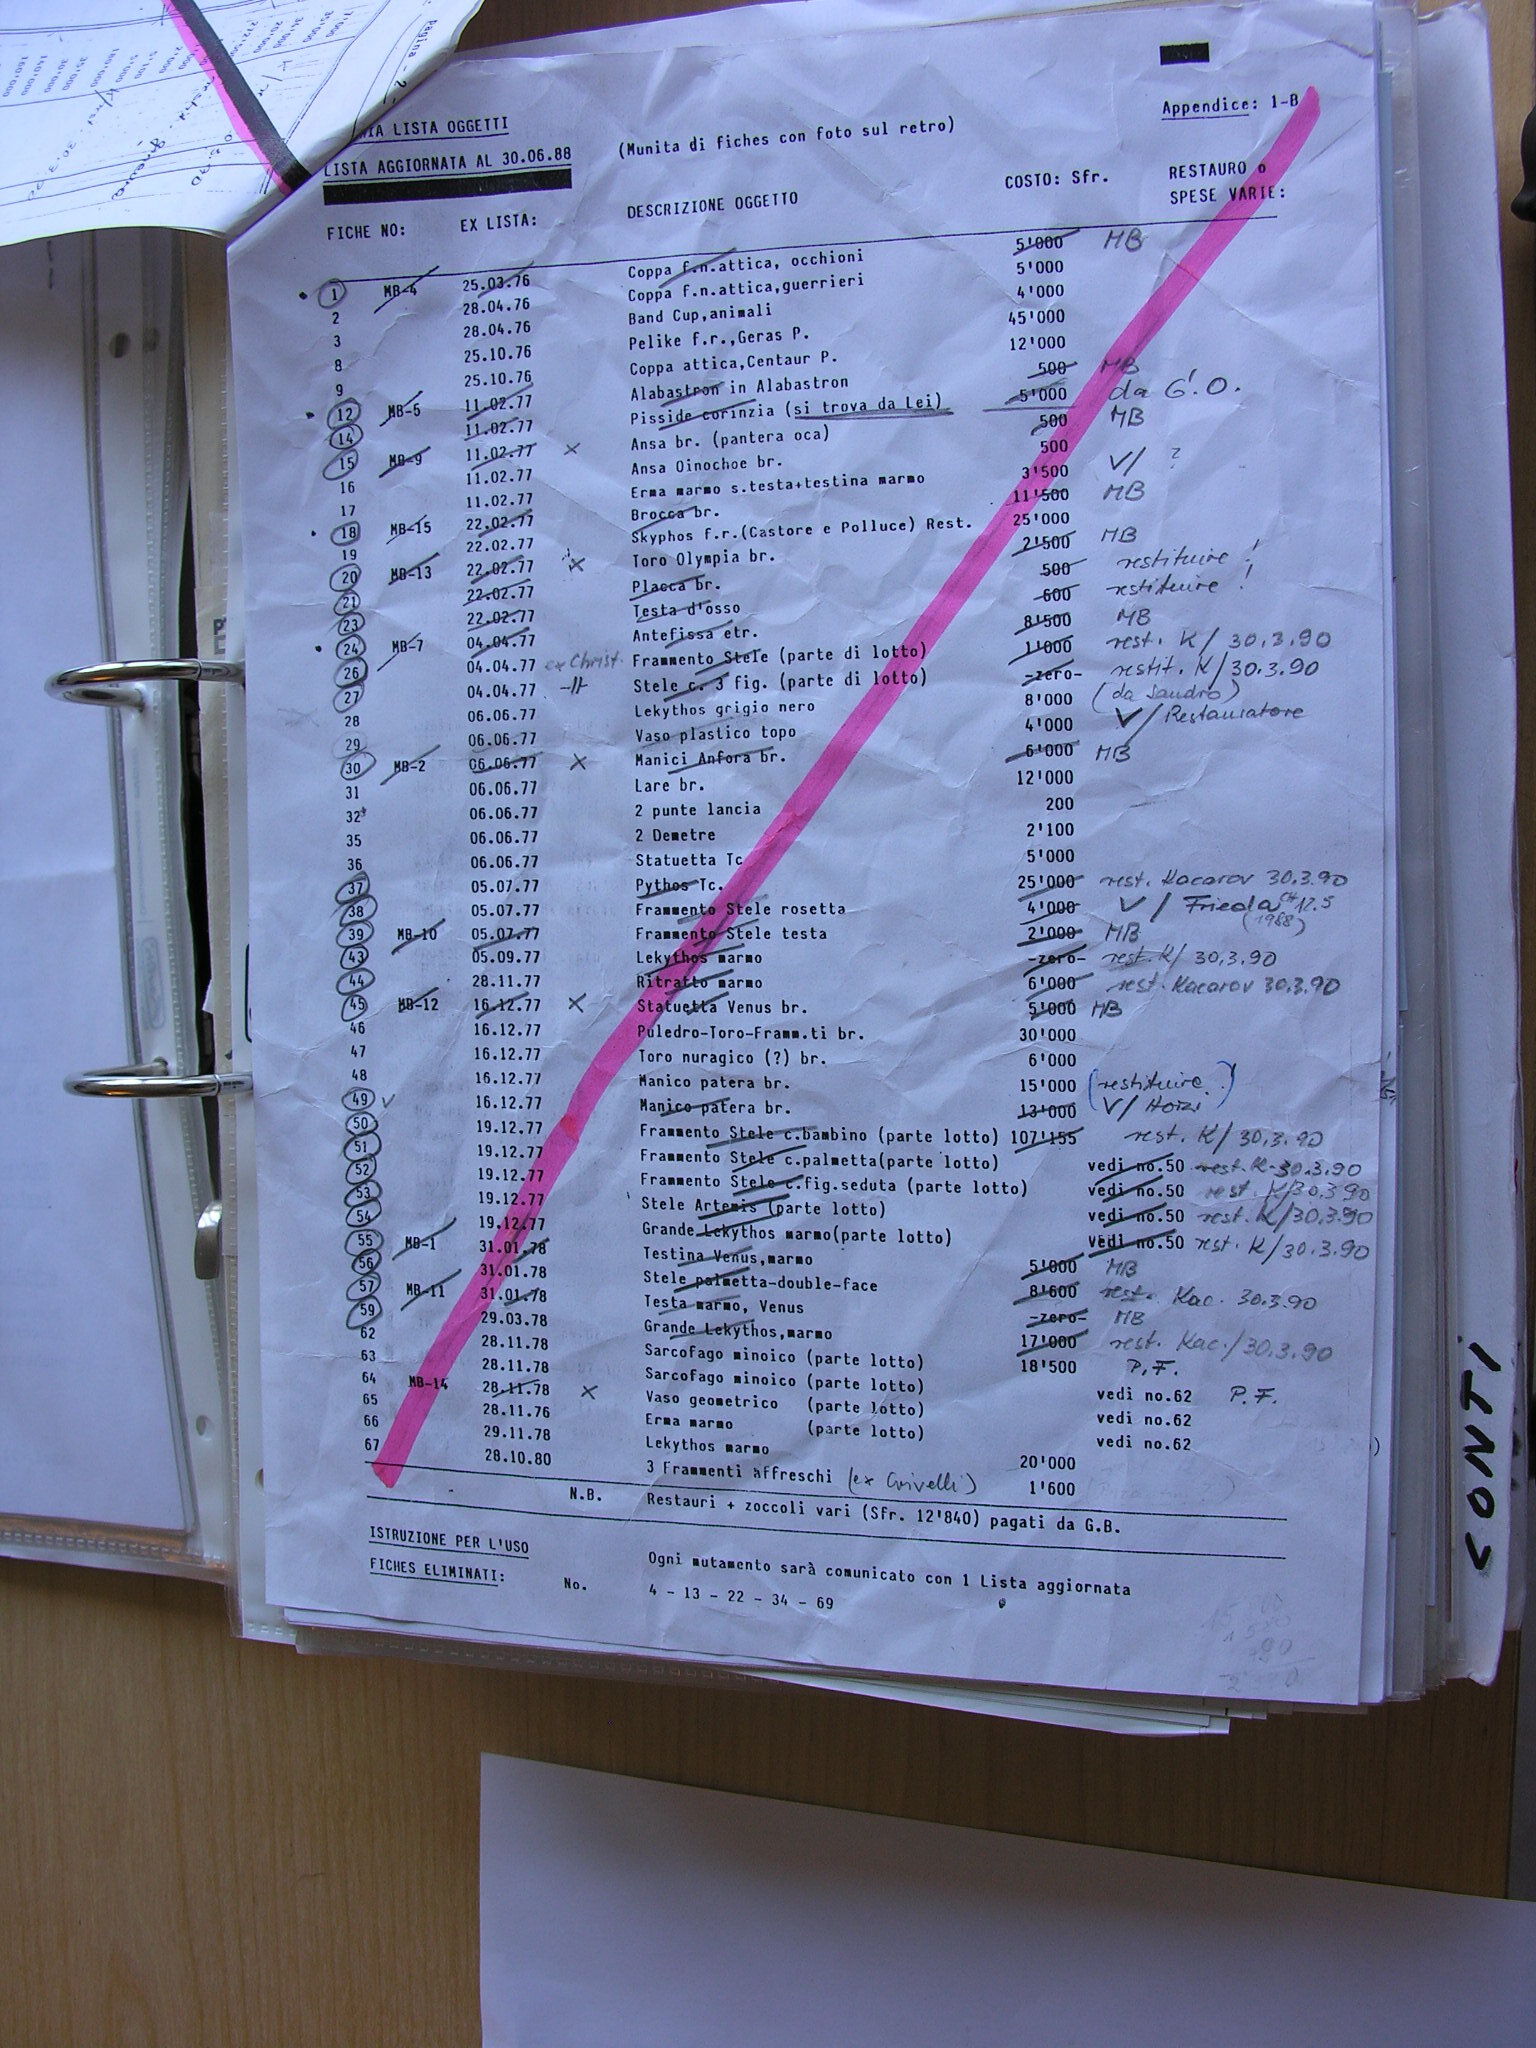 pagina - 2
Appendice: 1-B
LISTA OGGETTI
LISTA AGGIORNATA AL 30.06.88 (Munita di fiches con foto sul retro)
FICHE NO: EX LISTA: DESCRIZIONE OGGETTO COSTO: Sfr. RESTAURO o SPESE VARIE:
1 MB-4 25.03.76 Coppa f.n.attica, occhioni 5'000 MB
2 28.04.76 Coppa f.n.attica,guerrieri 5'000
3 28.04.76 Band Cup,animali 4'000
8 25.10.76 Pelike f.r.,Geras P. 45'000
9 25.10.76 Coppa attica,Centaur P. 12'000
12 MB-5 11.02.77 Alabastron in Alabastron 500 MB
14 11.02.77 Pisside corinzia (si trova da Lei) 5'000 da G.O.
15 MB-9 11.02.77 x Ansa br. (pantera oca) 500 MB
16 11.02.77 Ansa Oinochoe br. 500
17 11.02.77 Erma marmo s.testa+testina marmo 3'500 V/ ?
18 MB-15 22.02.77 Brocca br. 11'500 MB
19 22.02.77 Skyphos f.r.(Castore e Polluce) Rest. 25'000
20 MB-13 22.02.77 x Toro Olympia br. 2'500 MB
21 22.02.77 Placca br. 500 restituire !
23 22.02.77 Testa d'osso 600 restituire !
24 MB-7 04.04.77 Antefissa etr. 8'500 MB
26 04.04.77 ex Christ. Frammento Stele (parte di lotto) 1'000 rest. K/30.3.90
27 04.04.77 -"- Stele c. 3 fig. (parte di lotto) -zero- restit. K/30.3.90
28 06.06.77 Lekythos grigio nero 8'000 (da Sandro)
29 06.06.77 Vaso plastico topo 4'000 V/Restauratore
30 MB-2 06.06.77 x Manici Anfora br. 6'000 MB
31 06.06.77 Lare br. 12'000
32 06.06.77 2 punte lancia 200
35 06.06.77 2 Demetre 2'100
36 06.06.77 Statuetta Tc 5'000
37 05.07.77 Pythos Tc. 25'000 rest. Kacarov 30.3.90
38 05.07.77 Frammento Stele rosetta 4'000 V/ Frieda CH 12.5 (1988)
39 MB-10 05.07.77 Frammento Stele testa 2'000 MB
43 05.09.77 Lekythos marmo -zero- rest. K/30.3.90
44 28.11.77 Ritratto marmo 6'000 rest. Kacarov 30.3.90
45 MB-12 16.12.77 x Statuetta Venus br. 5'000 MB
46 16.12.77 Puledro-Toro-Framm.ti br. 30'000
47 16.12.77 Toro nuragico (?) br. 6'000
48 16.12.77 Manico patera br. 15'000 (restituire?)
49 V 16.12.77 Manico patera br. 13'000 V/
50 19.12.77 Frammento Stele c.bambino (parte lotto) 107'155 rest. K/30.3.90
51 19.12.77 Frammento Stele c.palmetta(parte lotto) vedi no.50 rest. K-30.3.90
52 19.12.77 Frammento Stele c.fig.seduta (parte lotto) vedi no.50 rest. K/30.3.90
53 19.12.77 Stele Artemis (parte lotto) vedi no.50 rest. K/30.3.90
54 19.12.77 Grande Lekythos marmo(parte lotto) vedi no.50 rest. K/30.3.90
55 MB-1 31.01.78 Testina Venus,marmo 5'000 MB
56 31.01.78 Stele palmetta-double-face 8'600 rest. Kac. 30.3.90
57 MB-11 31.01.78 Testa marmo, Venus -zero- MB
59 29.03.78 Grande Lekythos,marmo 17'000 rest. Kac./30.3.90
62 28.11.78 Sarcofago minoico (parte lotto) 18'500 P.F.
63 28.11.78 Sarcofago minoico (parte lotto) vedi no.62 P.F.
64 MB-14 28.11.78 x Vaso geometrico (parte lotto) vedi no.62
65 28.11.76 Erma marmo (parte lotto) vedi no.62
66 29.11.78 Lekythos marmo 20'000
67 28.10.80 3 Frammenti affreschi (ex Crivelli) 1'600
N.B. Restauri + zoccoli vari (Sfr. 12'840) pagati da G.B.
ISTRUZIONE PER L'USO Ogni mutamento sarà comunicato con 1 Lista aggiornata
FICHES ELIMINATI: No. 4 - 13 - 22 - 34 - 69
CONTI